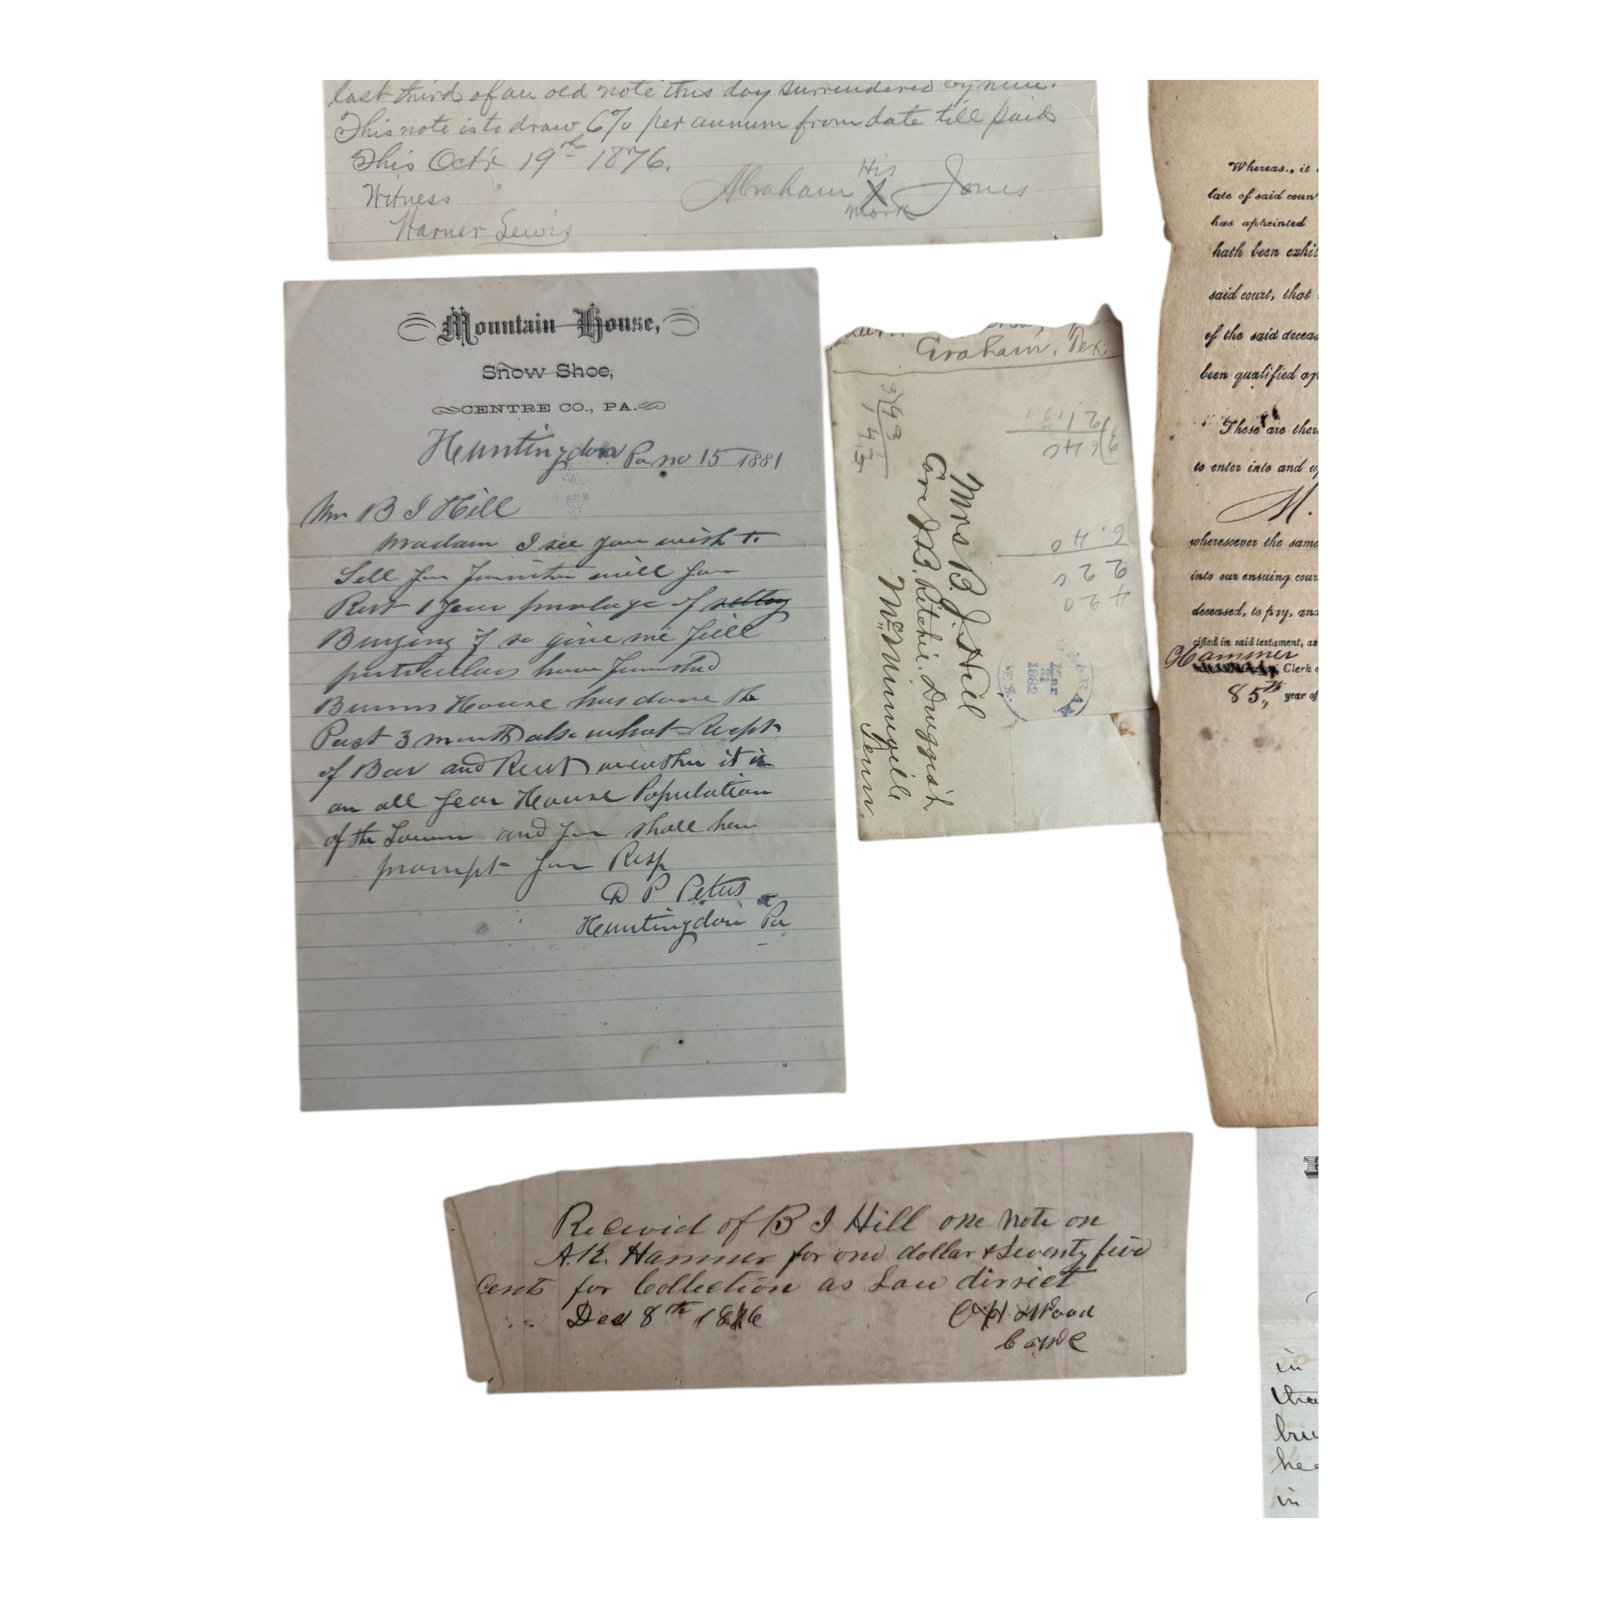 last third of an old note this day surrendered by him.
This note is to draw 6% per annum from date till paid
This Octr 19th 1876.
Witness
Warner Lewis
Abraham His X Mark Jones
Mountain House,
Snow Shoe,
CENTRE CO., PA.
Huntingdon Pa no 15 1881
Mrs B J Hill
Madam I see you wish to
Sell your furnitur will you
Rent 1 year privelage of
Buying if so give me full
perticulars how furnished
Burns House has done the
Past 3 month also what Recpt
of Bar and Rent weather it is
an all year House Population
of the Town and you shall hear
prompt your Resp
D P Peters
Huntingdon Pa
Graham, Tex.
Mrs B. J. Hill
Care J. B. Ritchie. Druggist
McMinnville
Tenn.
3)93
3)640
213
420
220
6.40
Mar
1882
TEX.
Whereas, it
late of said coun
has appointed
hath been exhi
said court, that
of the said deceas
been qualified
These are ther
to enter into and
M.
wheresoever the same
into our ensuing cour
deceased, to pay, and
cified in said testament, as
Hammer
Clerk
85th year of
Recevid of B J Hill one note on
A.K. Hammer for one dollar & Seventy five
Cents for Collection as Law dirrict
Dec 8th 1876
C H Wood
in
tha
bu
he
in